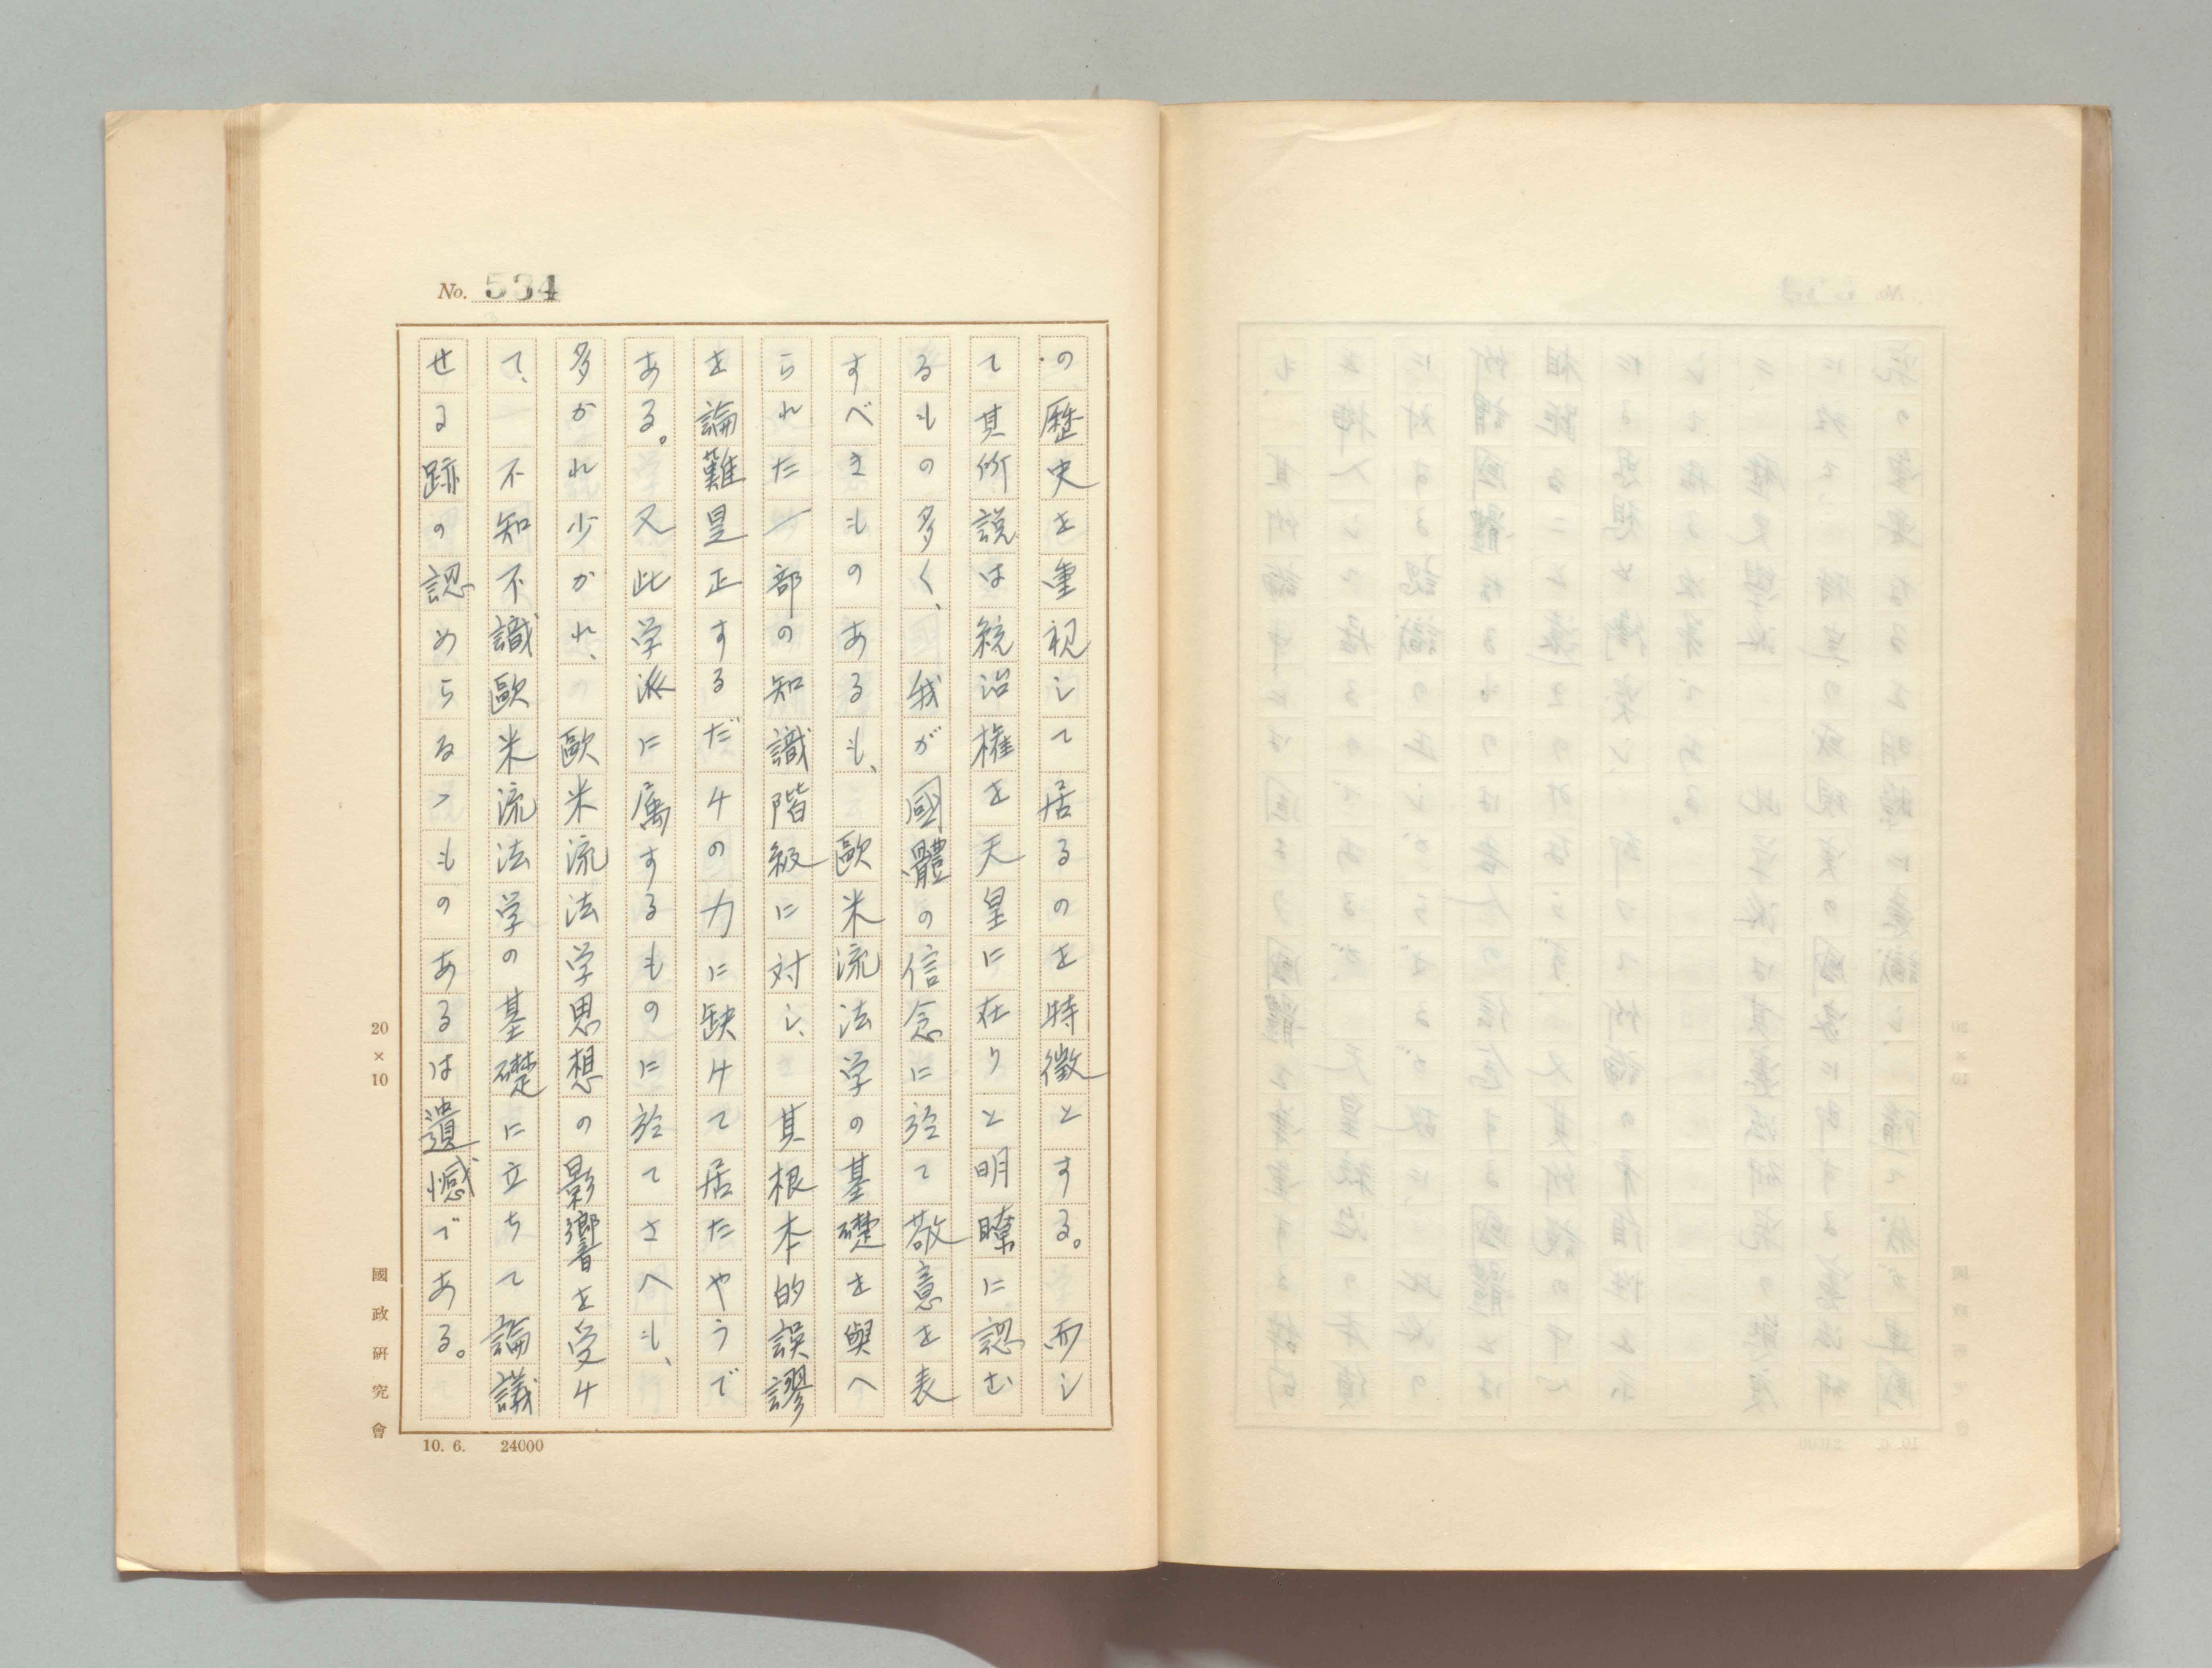 No. 534
の歴史を重視して居るのを特徴とする。而し
て其所説は統治権を天皇に在りと明瞭に認む
るもの多く、我が國體の信念に於て敬意を表
すべきものあるも、歐米流法学の基礎を與へ
られた一部の知識階級に対し、其根本的誤謬
を論難是正するだけの力に缺けて居たやうで
ある。又此学派に属するものに於てさへも、
多かれ少かれ、歐米流法学思想の影響を受け
て、不知不識歐米流法学の基礎に立ちて論議
せる跡の認めらるゝものあるは遺憾である。
20×10
國政研究會
10. 6. 24000